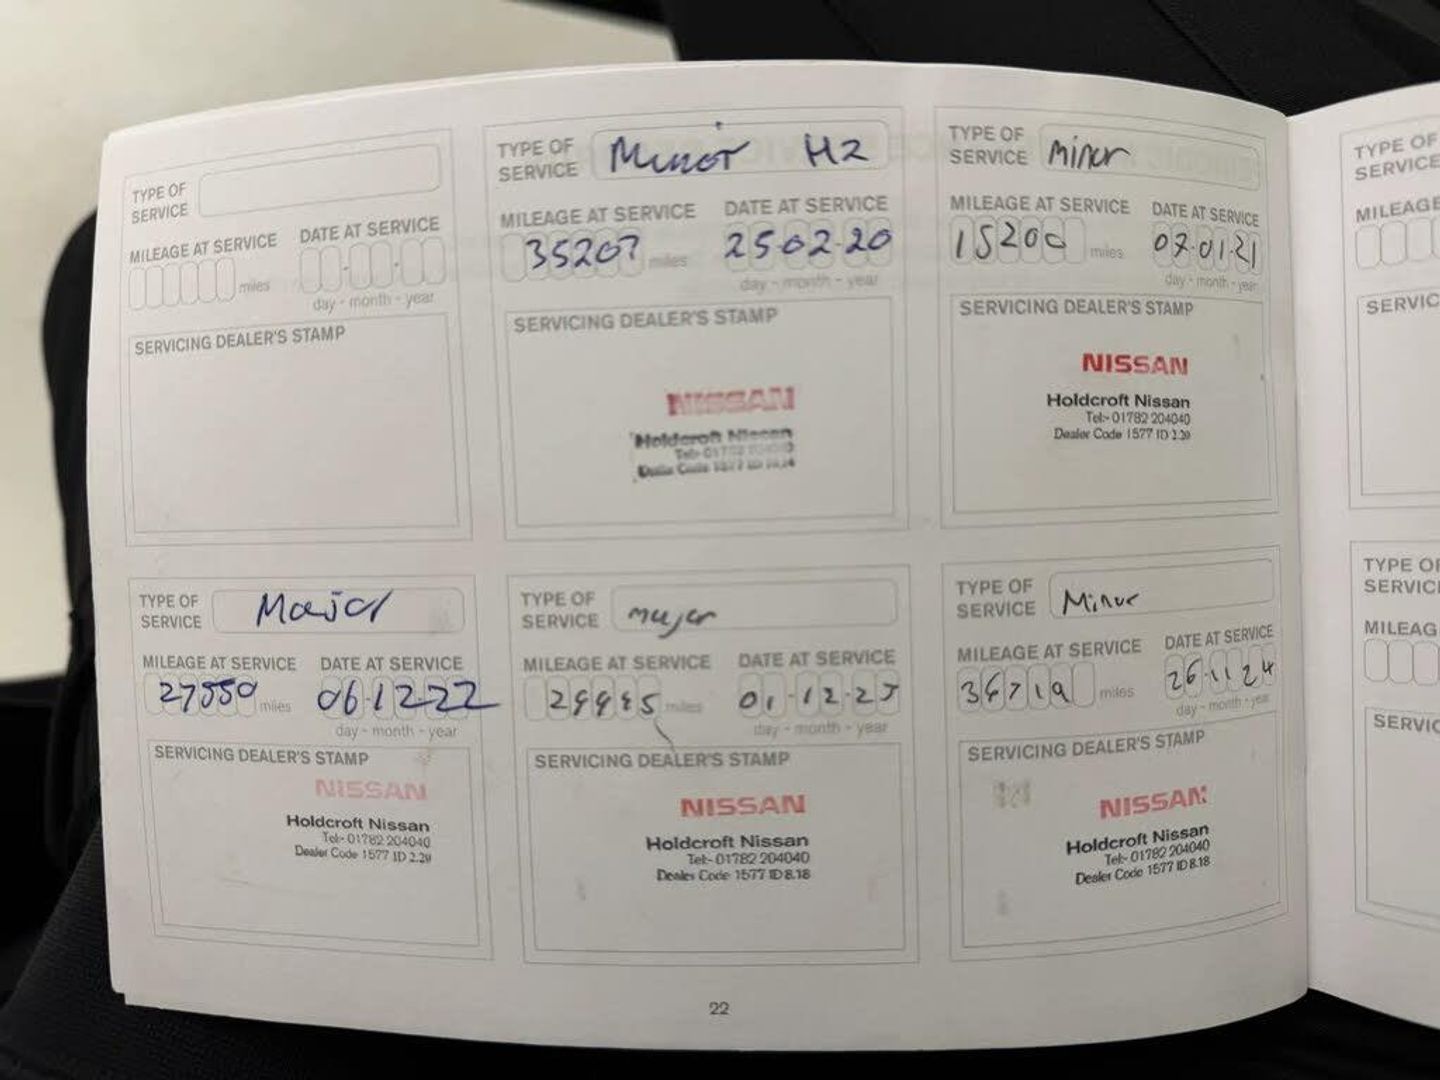 TYPE OF
SERVICE
MILEAGE AT SERVICE
DATE AT SERVICE
miles
day - month - year
SERVICING DEALER'S STAMP
TYPE OF
SERVICE
Minor H2
MILEAGE AT SERVICE
DATE AT SERVICE
35207 miles
25·02·20
day - month - year
SERVICING DEALER'S STAMP
NISSAN
Holdcroft Nissan
TYPE OF
SERVICE
Minor
MILEAGE AT SERVICE
DATE AT SERVICE
15200 miles
07·01·21
day - month - year
SERVICING DEALER'S STAMP
NISSAN
Holdcroft Nissan
Tel:- 01782 204040
Dealer Code 1577 ID 2.29
TYPE OF
SERVICE
Major
MILEAGE AT SERVICE
DATE AT SERVICE
miles
06·12·22
day - month - year
SERVICING DEALER'S STAMP
NISSAN
Holdcroft Nissan
Tel:- 01782 204040
Dealer Code 1577 ID 2.29
TYPE OF
SERVICE
major
MILEAGE AT SERVICE
DATE AT SERVICE
miles
01-12-23
day - month - year
SERVICING DEALER'S STAMP
NISSAN
Holdcroft Nissan
Tel:- 01782 204040
Dealer Code 1577 ID 8.18
TYPE OF
SERVICE
Minor
MILEAGE AT SERVICE
DATE AT SERVICE
36719 miles
26·11·24
day - month - year
SERVICING DEALER'S STAMP
NISSAN
Holdcroft Nissan
Tel:- 01782 204040
Dealer Code 1577 ID 8.18
22
TYPE OF
SERVICE
TYPE OF